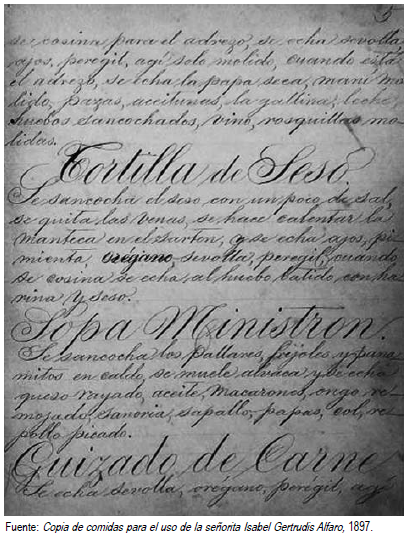 5
se cosina para el adrezo, se echa sevolla
ajos, peregil, agi solo molido, cuando está
el adrezo, se echa la papa seca, mani mo
lido, pazas, aceitunas, la gallina, leche,
huebos sancochados, vino, rosquillas mo
lidas.
Tortilla de Seso
Se sancocha el seso con un poco de sal,
se quita las venas, se hace calentar la
manteca en el sarten, y se echa ajos, pi
mienta, oregano, sevolla, peregil, cuando
se cosina se echa al huebo batido, con ha
rina y seso.
Sopa Ministron.
Se sancocha los pallares, frijoles y puna
mitos en caldo, se muele alvaca y se echa
queso rayado, aceite, macarones, ongo re
mojado, sanoria, sapallo, papas, col, re
pollo picado.
Guizado de Carne
Se echa sevolla, orégano, peregil, agi
Fuente: Copia de comidas para el uso de la señorita Isabel Gertrudis Alfaro, 1897.